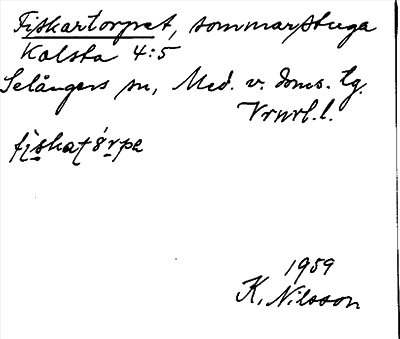 Fiskartorpet, sommarstuga
Kolsta 4:5
Selångers sn, Med. v. doms. tg.
Vrnrl. l.
fiskaṭórpe
1959
K. Nilsson